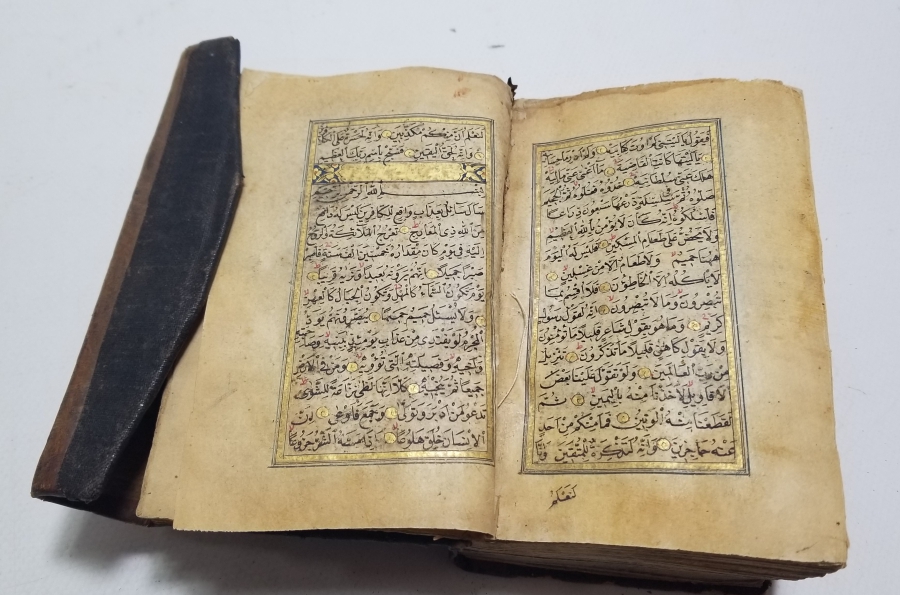 فيقول ياليتني لم اوت كتابيه ولم ادر ما حسابيه
ياليتها كانت القاضية ما اغنى عني ماليه
هلك عني سلطانيه خذوه فغلوه ثم الجحيم
صلوه ثم في سلسلة ذرعها سبعون ذراعا
فاسلكوه انه كان لا يؤمن بالله العظيم
ولا يحض على طعام المسكين فليس له اليوم
ههنا حميم ولا طعام الا من غسلين
لا يأكله الا الخاطؤن فلا اقسم بما
تبصرون وما لا تبصرون انه لقول رسول
كريم وما هو بقول شاعر قليلا ما تؤمنون
ولا بقول كاهن قليلا ما تذكرون تنزيل
من رب العالمين ولو تقول علينا بعض
الاقاويل لاخذنا منه باليمين ثم
لقطعنا منه الوتين فما منكم من احد
عنه حاجزين وانه لتذكرة للمتقين وانا
لنعلم
لنعلم ان منكم مكذبين وانه لحسرة على الكافرين
وانه لحق اليقين فسبح باسم ربك العظيم
بسم الله الرحمن الرحيم
سال سائل بعذاب واقع للكافرين ليس له دافع
من الله ذي المعارج تعرج الملائكة والروح
اليه في يوم كان مقداره خمسين الف سنة فاصبر
صبرا جميلا انهم يرونه بعيدا ونريه قريبا
يوم تكون السماء كالمهل وتكون الجبال كالعهن
ولا يسئل حميم حميما يبصرونهم يود
المجرم لو يفتدي من عذاب يومئذ ببنيه وصاحبته
واخيه وفصيلته التي تؤويه ومن في الارض
جميعا ثم ينجيه كلا انها لظى نزاعة للشوى
تدعو من ادبر وتولى وجمع فاوعى ان
الانسان خلق هلوعا اذا مسه الشر جزوعا